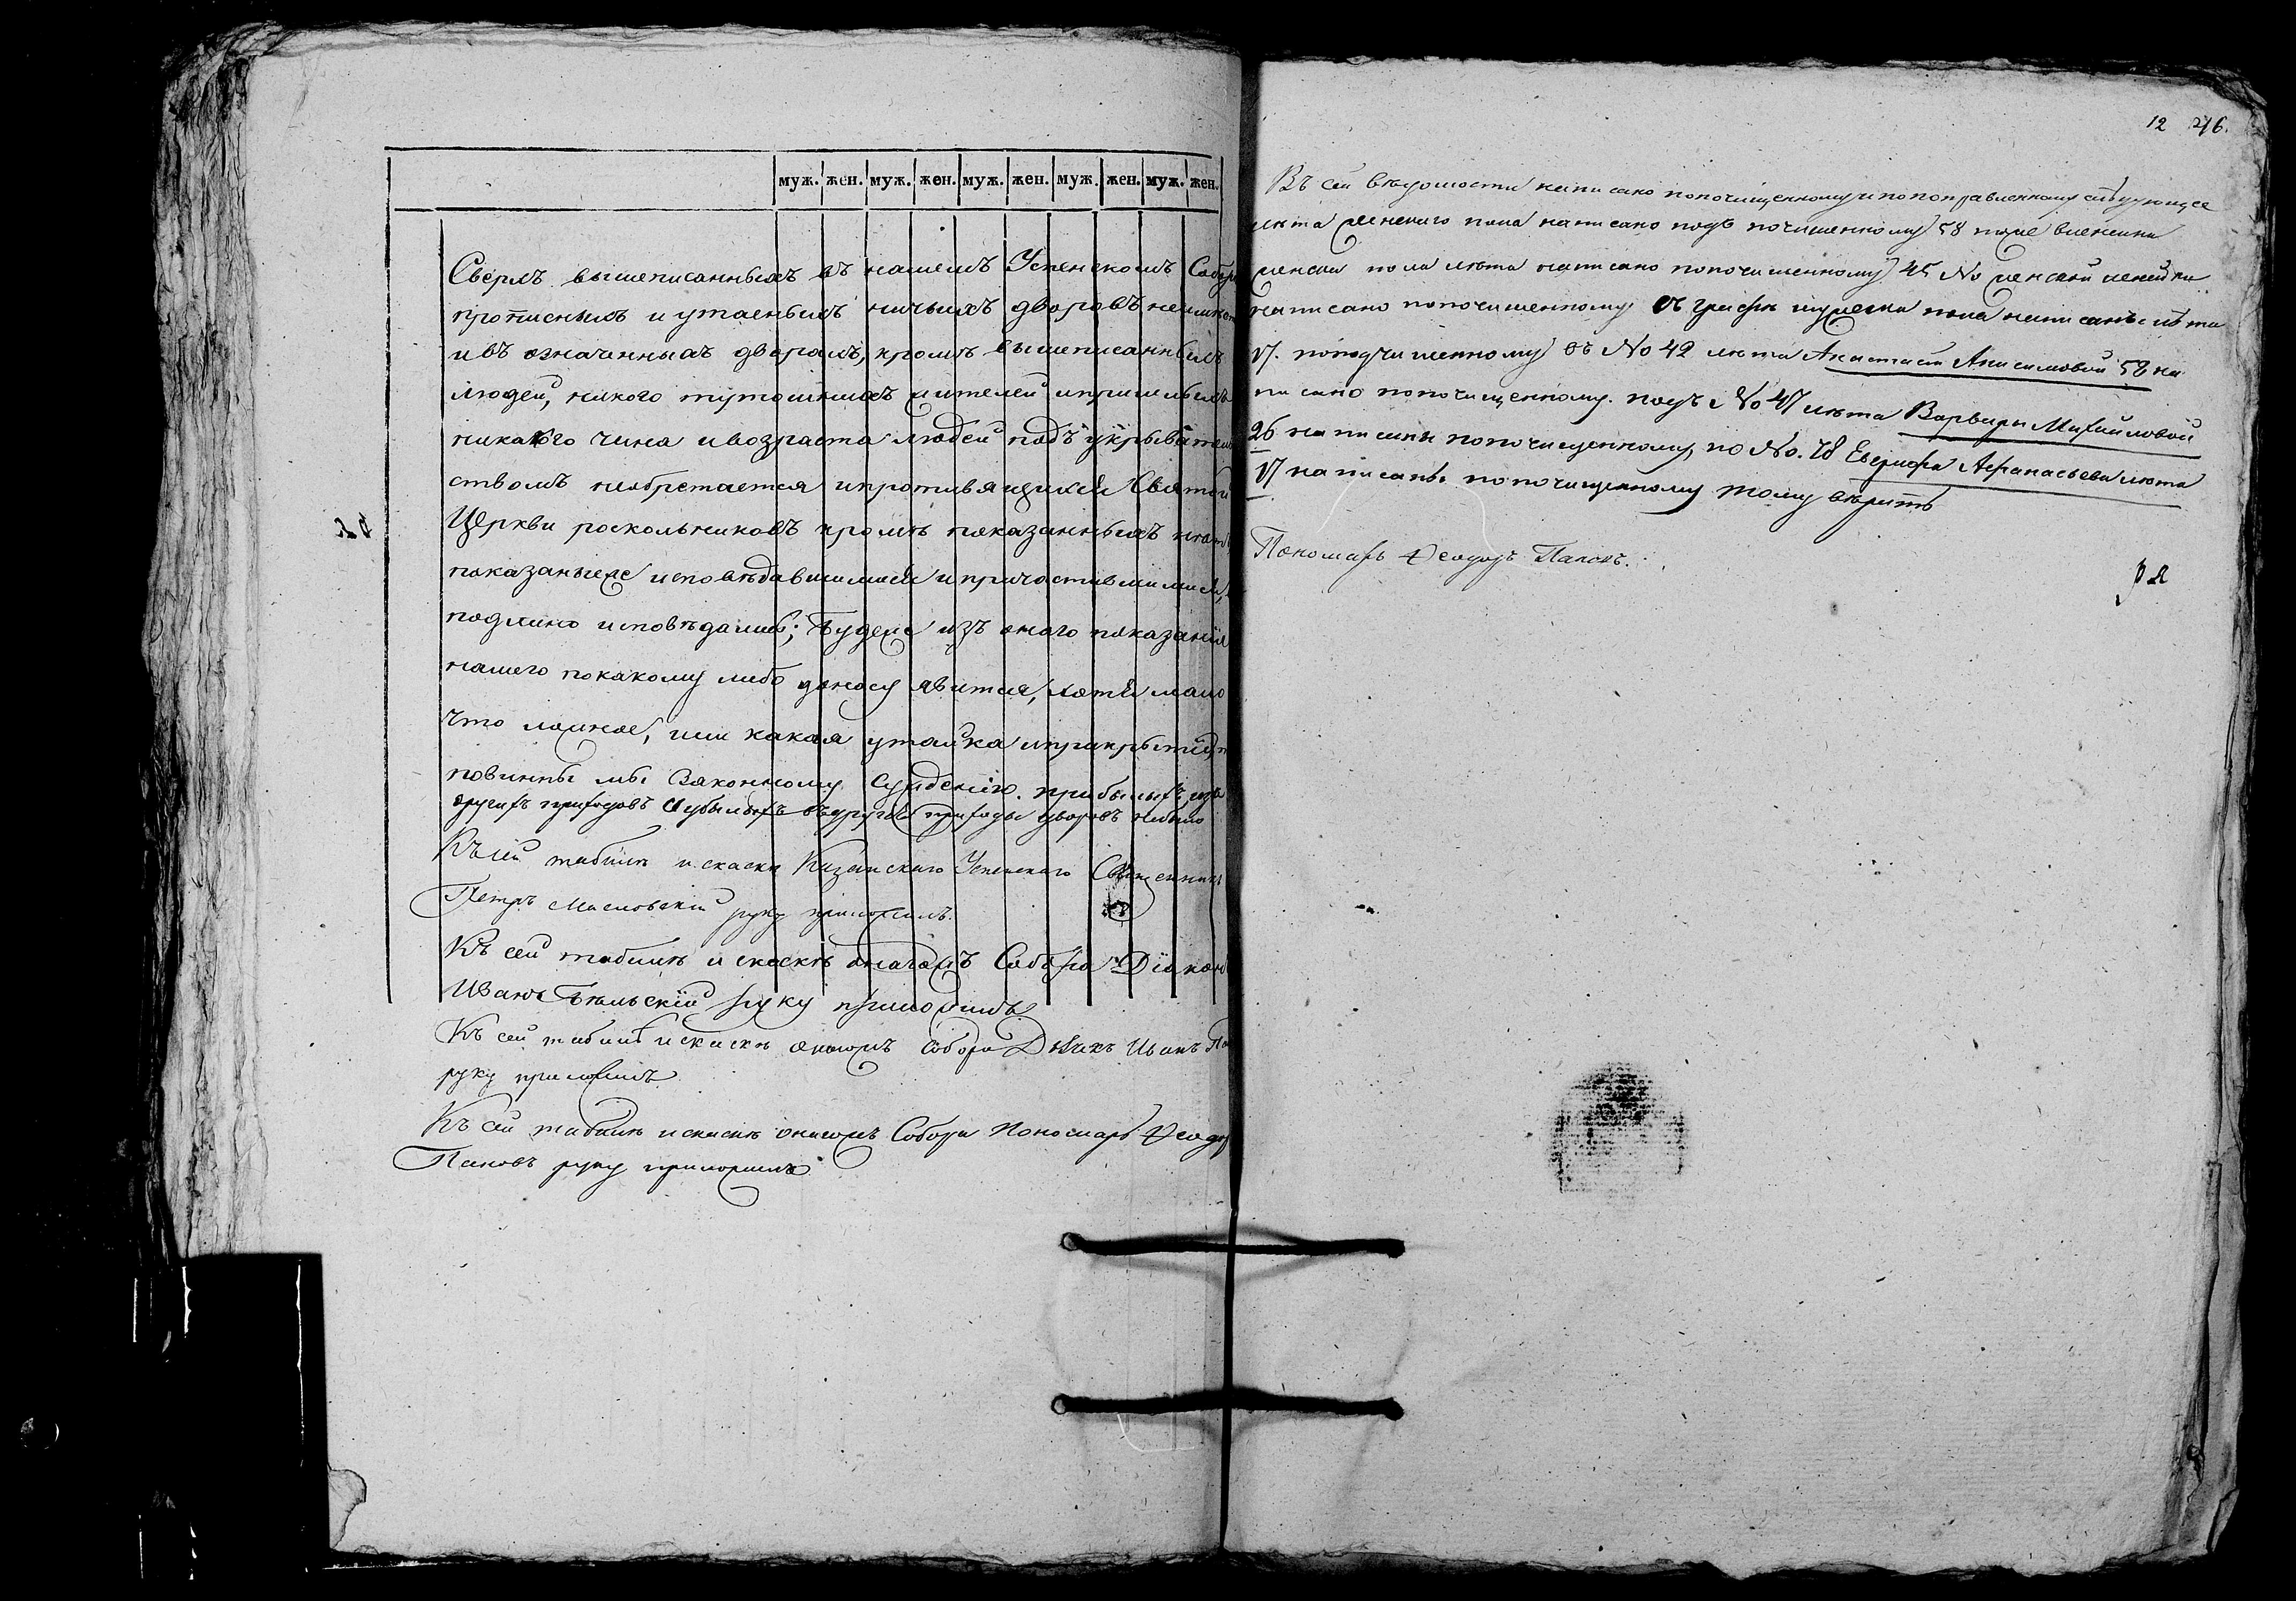 муж. жен. муж. жен. муж. жен. муж. жен. муж. жен.
Сверхъ вышеписанныхъ въ нашемъ Успенскомъ Собор
прописныхъ и утаенныхъ ничьихъ дворовъ неимеет
ивъ означенныхъ дворахъ, кромѣ вышеписанныхъ
людей, никого тутошнихъ жителей ипришлыхъ
никакого чина ивозраста людей подъ укрыватель
ствомъ необретается ипротивящихся Святой
Церкви роскольниковъ кромѣ показанныхъ
показаныеже исповѣдавшимися ипричастившимися,
подлинно исповѣдались; Буде же изъ оного показанія
нашего покакому либо доносу явится, хотя мало
что ложное, или какая утайка иприкрытие,
повинны мы Законному Сужденію. прибылыхъ изъ
другихъ приходовъ иубылыхъ въдругіе приходы дворовъ небыло
Къ сей табели искаски Казанскаго Успенскаго Священникъ
Петръ Масловскій руку приложилъ.
Къ сей табели и скаскѣ онагожъ Собора Діаконъ
Иванъ Бѣльскій руку приложилъ
Къ сей табели искаскѣ онагожъ Собора Дьячекъ Иванъ По
руку приложилъ
Къ сей табели искаскѣ онагожъ Собора Пономарь Феодор
Паповъ руку приложилъ
12 216.
Въ сей вѣдомости написано попочищенному ипопоправленному слѣдующее
лѣта женскаго пола написано подъ почищенному 58
женска пола лѣта написано попочищенному 45 No женской
написано попочищенному въ графѣ мужеска пола написаны лѣта
17. поподчищенному въ No 42 лѣта Анастасіи Анисимовой 58 на
писано попочищенному. подъ No 47 лѣта Варвары Михайловой
26 написаны попочищенному, по No. 78 Афанасьева лѣта
17 написаны попочищенному тому вѣрить
Пономарь Феодоръ Паповъ.